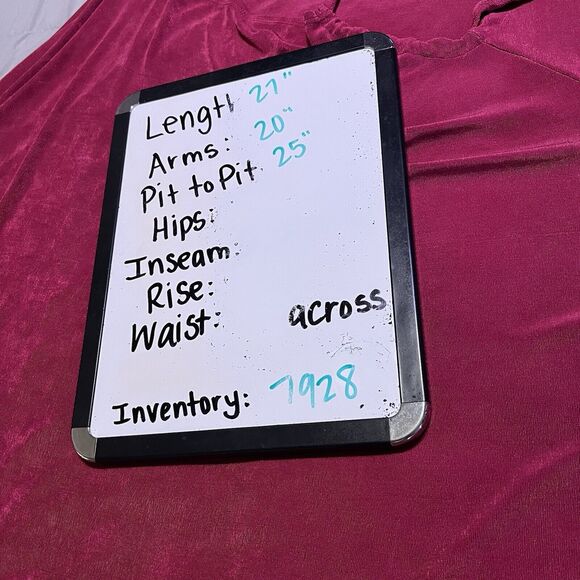 Length 27"
Arms: 20"
Pit to Pit 25"
Hips:
Inseam
Rise:
Waist: across
Inventory: 7928